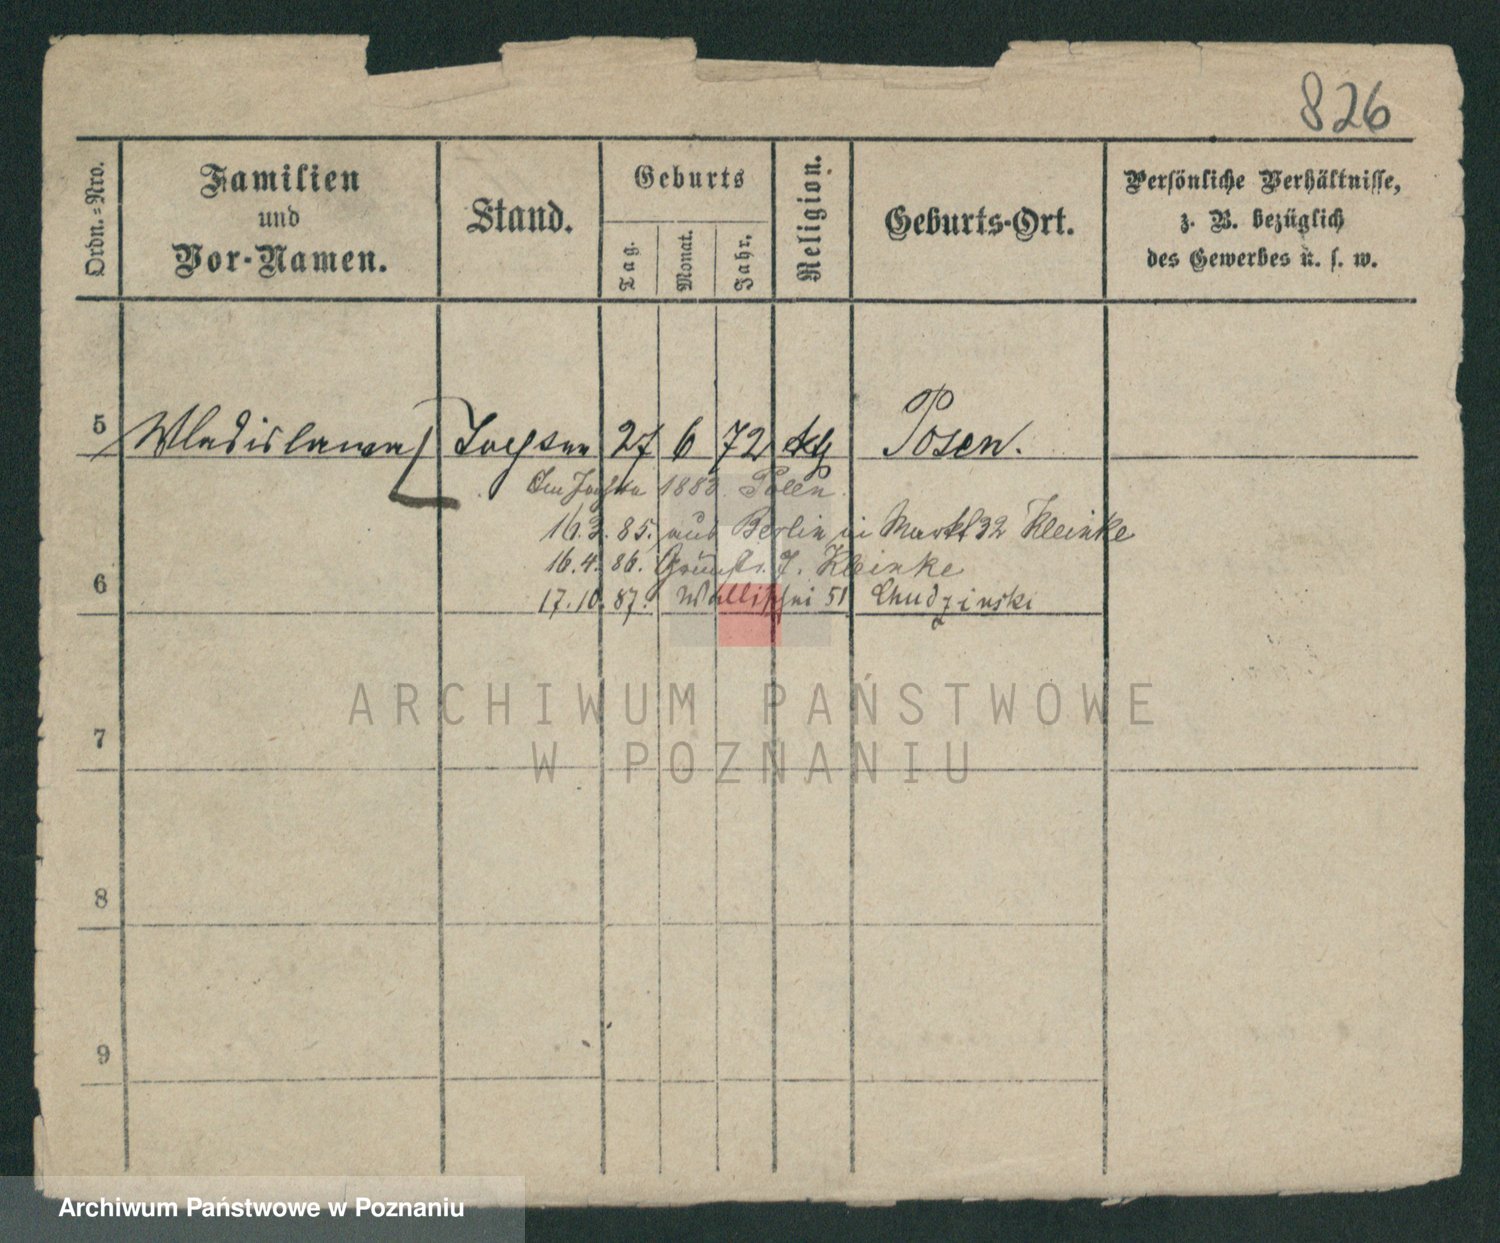 826
Ordn.-Nro.
Familien
und
Vor-Namen.
Stand.
Geburts
Tag.
Monat.
Jahr.
Religion.
Geburts-Ort.
Persönliche Verhältnisse,
z. B. bezüglich
des Gewerbes u. s. w.
5 Wladislawa Tochter 27 6 72 kth Posen.
1883.
16.3.85. aus Berlin in Markt 32 Kleinke
6 16.4.86. Grünstr. 7. Kleinke
17.10.87. Wallischei 51 Chudzinski
ARCHIWUM PAŃSTWOWE
W POZNANIU
7
8
9
Archiwum Państwowe w Poznaniu